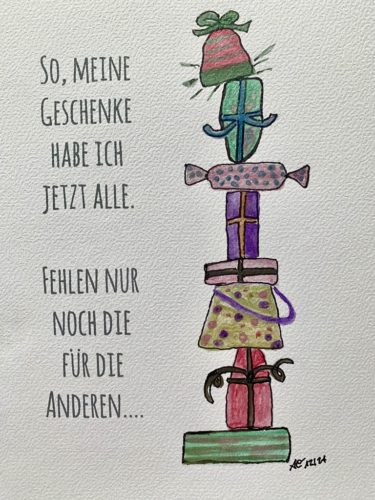 So, meine
Geschenke
habe ich
jetzt alle.
Fehlen nur
noch die
für die
Anderen....